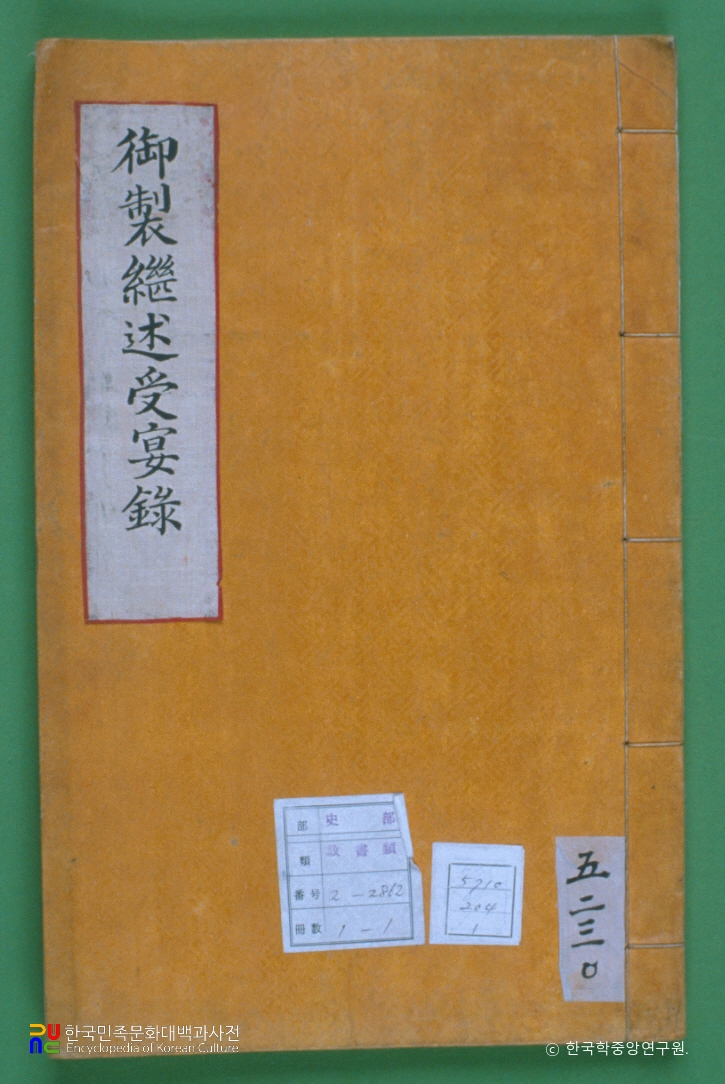 御製繼述受宴錄
部 史 部
類 政書類
番号 2-2862
冊数 1-1
5710
204
1
五二三〇
한국민족문화대백과사전
Encyclopedia of Korean Culture
ⓒ 한국학중앙연구원.